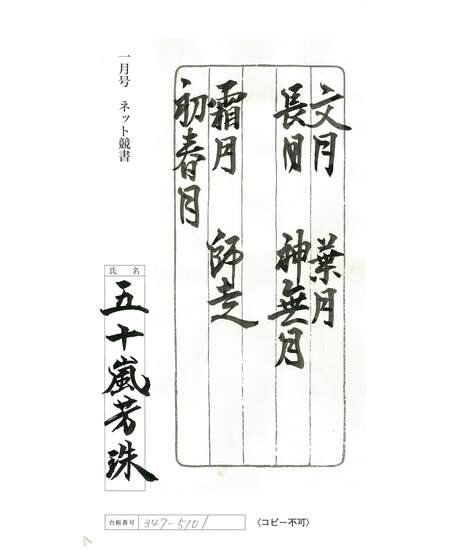 文月 葉月
長月 神無月
霜月 師走
初春月
一月号 ネット競書
氏名
五十嵐芳珠
台帳番号 347-5101
〈コピー不可〉